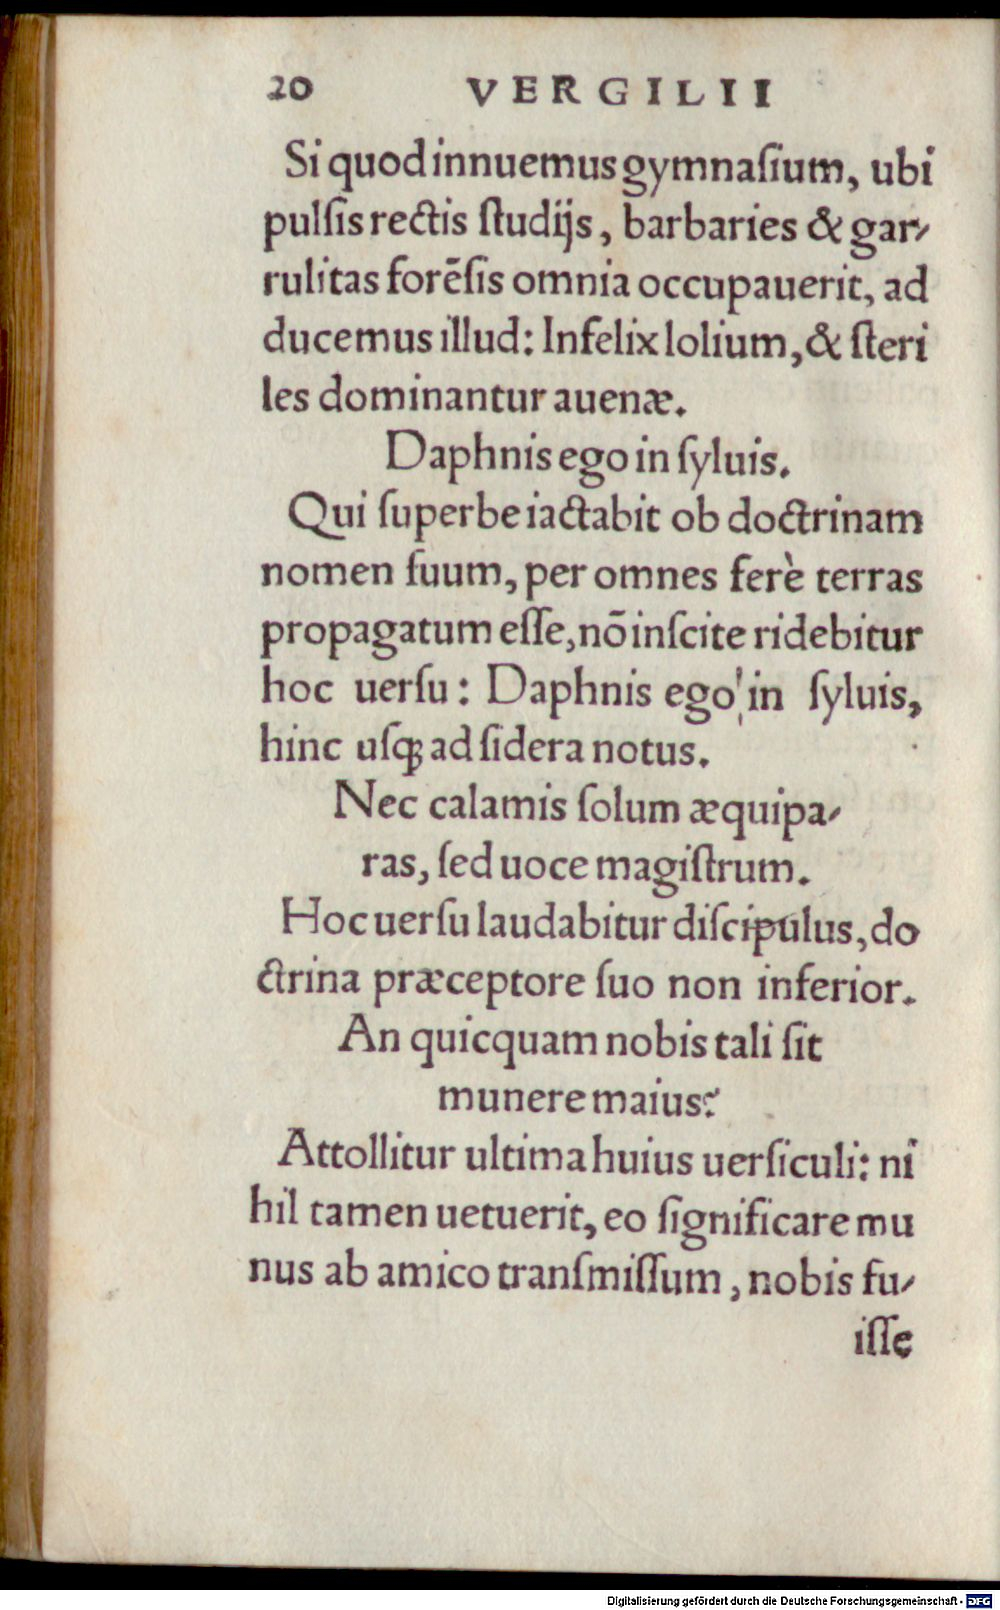 20 VERGILII
Si quod innuemus gymnaſium, ubi
pulſis rectis ſtudijs, barbaries & gar⸗
rulitas forēſis omnia occupauerit, ad
ducemus illud: Infelix lolium, & ſteri
les dominantur auenæ.
Daphnis ego in ſyluis.
Qui ſuperbe iactabit ob doctrinam
nomen ſuum, per omnes ferè terras
propagatum eſſe, nō inſcite ridebitur
hoc uerſu: Daphnis ego in ſyluis,
hinc uſꝙ ad ſidera notus.
Nec calamis ſolum æquipa⸗
ras, ſed uoce magiſtrum.
Hoc uerſu laudabitur diſcipulus, do
ctrina præceptore ſuo non inferior.
An quicquam nobis tali ſit
munere maius?
Attollitur ultima huius uerſiculi: ni
hil tamen uetuerit, eo ſignificare mu
nus ab amico tranſmiſſum, nobis fu⸗
iſſe
Digitalisierung gefördert durch die Deutsche Forschungsgemeinschaft - DFG